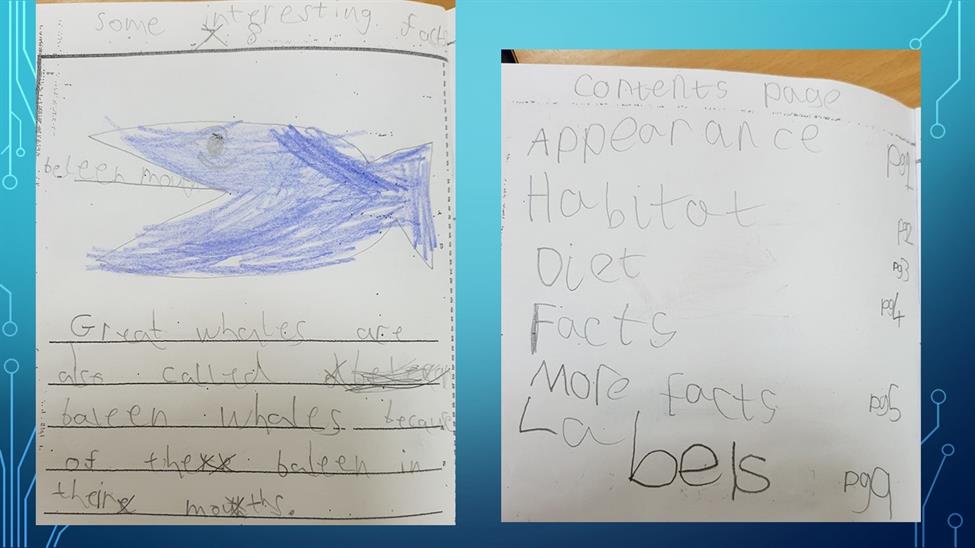 some interesting facts
beleen mouth
Great whales are
also called
baleen whales because
of the baleen in
their mouths.
Contents page
Appearance pg1
Habitat pg2
Diet pg3
Facts pg4
More facts pg5
Labels pg9